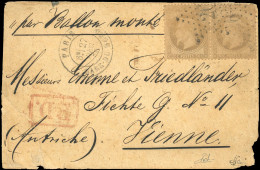 par Ballon monté
PARIS
Messieurs Etienne et Friedländer,
Fichte G. No 11
(Autriche) Vienne.
P.D.